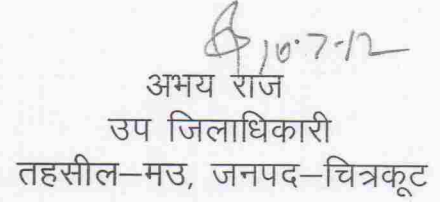 10.7.12
अभय राज
उप जिलाधिकारी
तहसील–मउ, जनपद–चित्रकूट